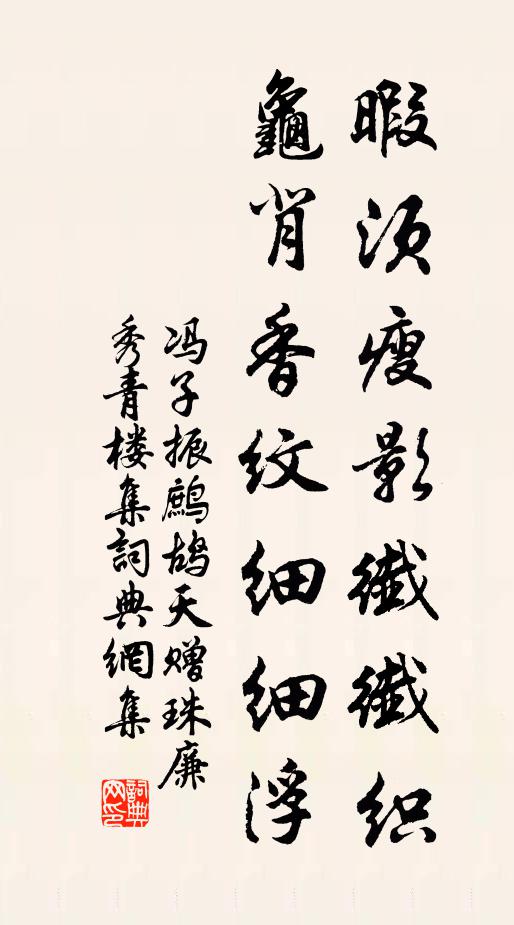 暇须瘦影纖纖织
龜背香纹细细浮
冯子振鹧鸪天赠珠廉
秀青楼集詞典網集
詞典网印